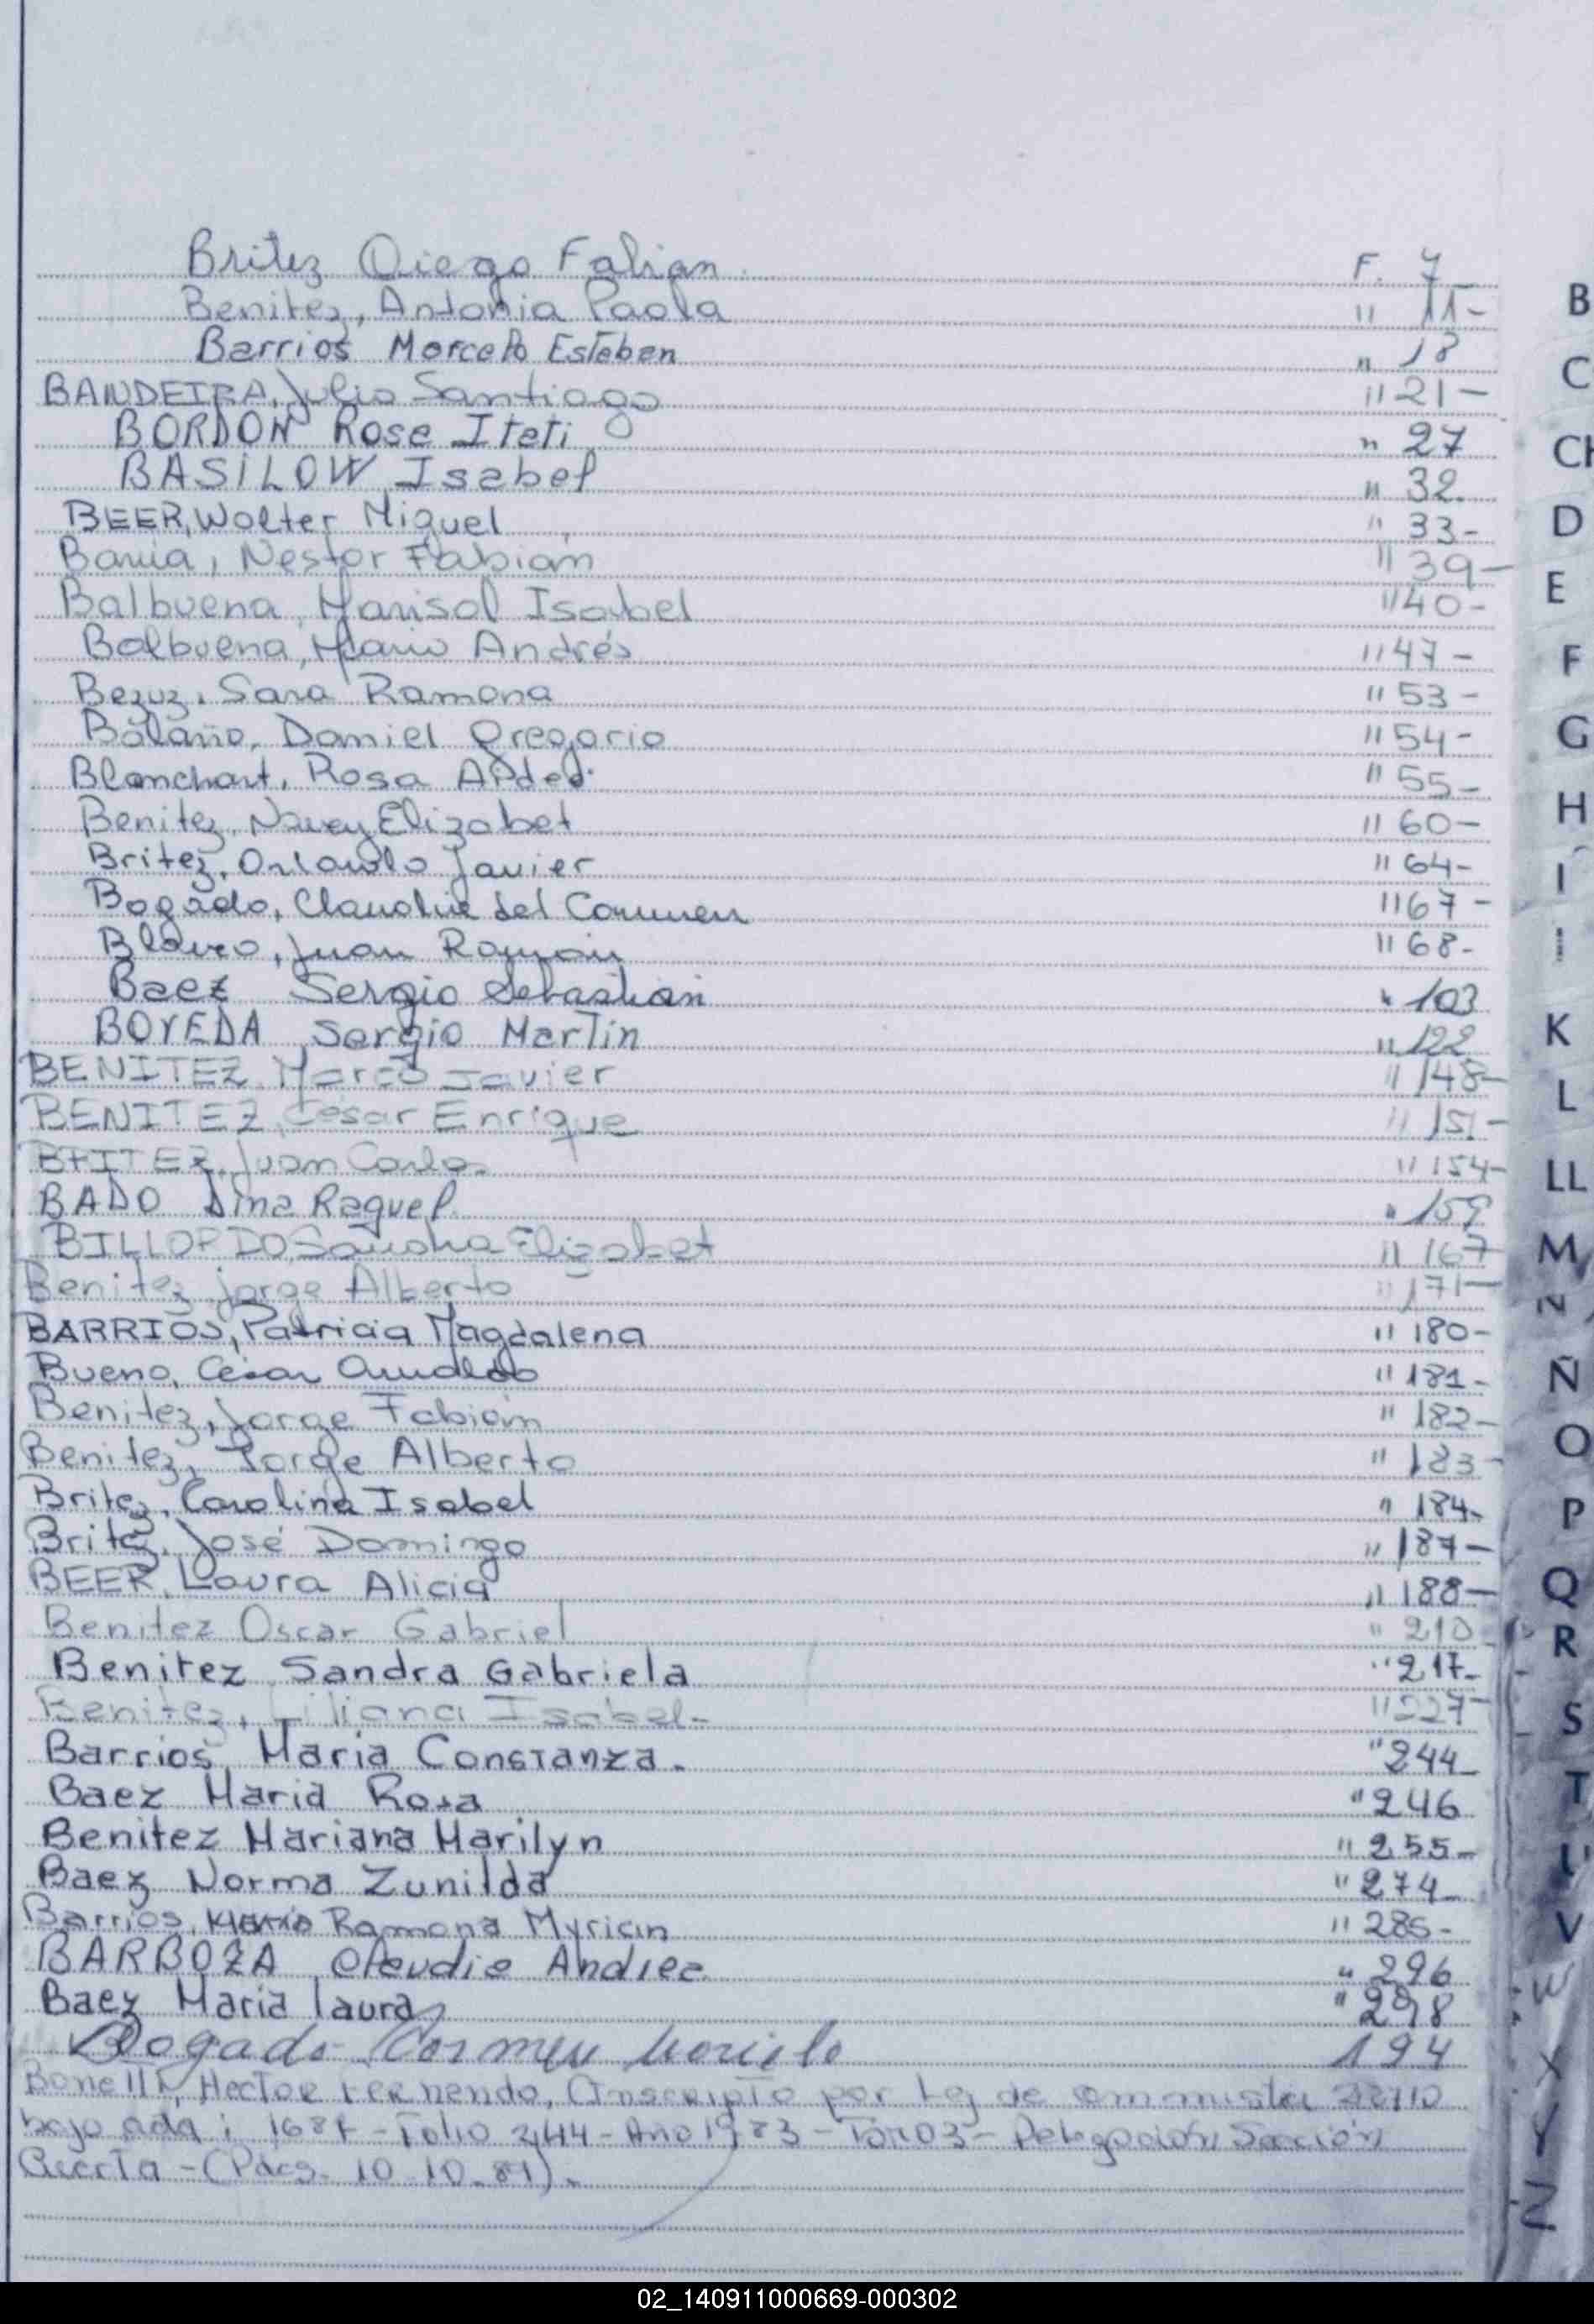 Britez Diego Fabian F. 7
Benitez, Antonia Paola " 11-
Barrios Marcelo Esteban " 18
BANDEIRA, Julio Santiago " 21-
BORDON Rosa Itati " 27
BASILOW Isabel " 32
BEER, Walter Miguel " 33-
Nestor Fabian " 39-
Balbuena, Marisol Isabel " 40-
Balbuena, Mario Andrés " 47-
Bezuz, Sara Ramona " 53-
Bolaño, Daniel Gregorio " 54-
Blanchart, Rosa " 55-
Benitez, Nancy Elizabet " 60-
Britez, Orlando Javier " 64-
Bogado, Claudia del Carmen " 67-
Blanco, Juan Ramón " 68-
Baez Sergio Sebastian " 103
BOVEDA Sergio Martin " 122
BENITEZ, Marco Javier " 148-
BENITEZ, Cesar Enrique " 151-
BRITEZ, Juan Carlos " 154-
BADO Dina Raquel " 159
BILLORDO, Sandra Elizabet " 167
Benitez Jorge Alberto " 171-
BARRIOS, Patricia Magdalena " 180-
Bueno, César Arnaldo " 181-
Benitez, Jorge Fabián " 182-
Benitez, Jorge Alberto " 183-
Britez, Carolina Isabel " 184-
Britez, José Domingo " 187-
BEER, Laura Alicia " 188-
Benitez Oscar Gabriel " 210
Benitez Sandra Gabriela " 217-
Benitez, Liliana Isabel- " 227-
Barrios, Maria Constanza. " 244
Baez Maria Rosa " 246
Benitez Mariana Marilyn " 255-
Baez Norma Zunilda " 274
Barrios, Ramona Myrian " 285-
BARBOZA Claudia Andrea " 296
Baez Maria laura " 298
Bogado Carmen 194
Bonelli, Hector Fernando, (Inscripto por Ley de
bajo acta: Folio 244 - Año 1983 - Tomo 3 - Delegación Sección
Cuarta - (Pdas. 10-10-84).
B
C
CH
D
E
F
G
H
I
K
L
LL
M
N
Ñ
O
P
Q
R
S
T
U
V
W
X
Y
Z
02_140911000669-000302